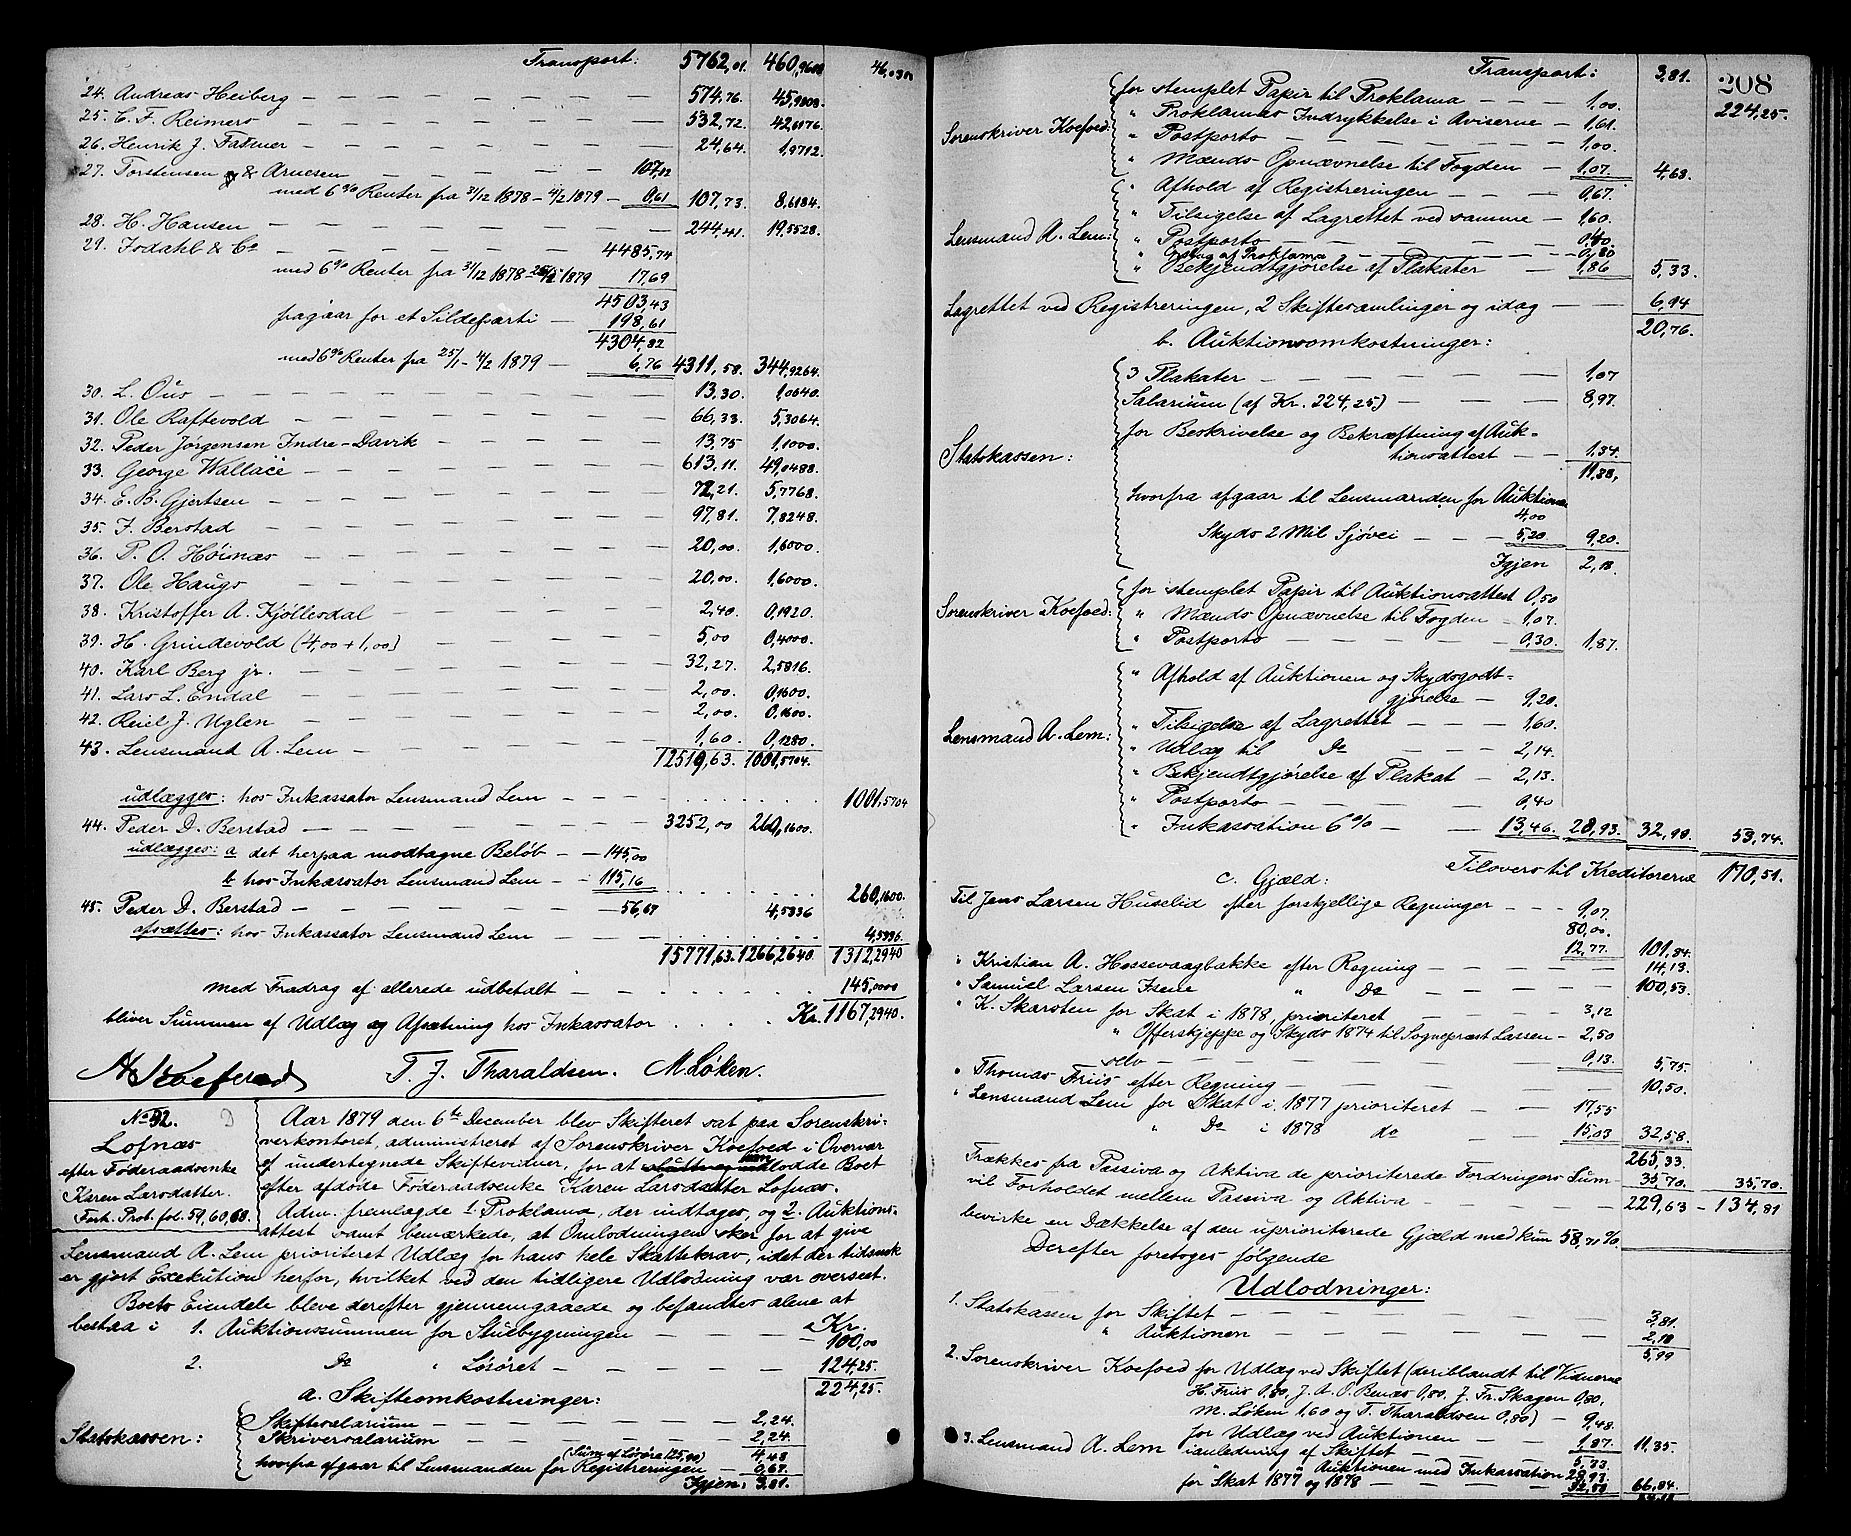 Transport: 5762,01. 460,9608 46,0300
24. Andreas Heiberg — 574,76. 45,9808.
25. C. F. Reimers — 532,72. 42,6176.
26. Henrik J. Fasmer — 24,64. 1,9712.
27. Torstensen & Arnesen — 107,12
med 6 % Renter fra 31/12 1878 - 4/2 1879 — 0,61 107,73. 8,6184.
28. H. Hansen — 244,41. 19,5528.
29. Isdahl & Co — 4485,74
med 6 % Renter fra 31/12 1878 - 25/1 1879 17,69
4503,43
fragaar for et Sildeparti — 198,61
4304,82
med 6 % Renter fra 25/1 - 4/2 1879 — 6,76 4311,58. 344,9264.
30. L. Ous — 13,30. 1,0640.
31. Ole Raftevold — 66,33. 5,3064.
32. Peder Jørgensen Indre-Davik — 13,75 1,1000.
33. George Wallace — 613,11. 49,0488.
34. E. B. Gjertsen — 72,21. 5,7768.
35. F. Berstad — 97,81. 7,8248.
36. P. O. Høinæs — 20,00. 1,6000.
37. Ole Haugs — 20,00. 1,6000.
38. Kristoffer A. Kjøllesdal — 2,40. 0,1920.
39. H. Grindevold (4,00 + 1,00) — 5,00 0,4000.
40. Karl Berg jr. — 32,27. 2,5816.
41. Lars L. Endal — 2,00. 0,1600.
42. Reiel J. Uglen — 2,00. 0,1600.
43. Lensmand A. Lem — 1,60. 0,1280.
12519,63. 1001,5704.
udlægges: hos Inkassator Lensmand Lem — 1001,5704
44. Peder D. Berstad — 3252,00 260,1600.
udlægges: a det herpaa modtagne Beløb — 145,00
b hos Inkassator Lensmand Lem — 115,16
260,1600.
45. Peder D. Berstad — 56,67 4,5336
afsættes: hos Inkassator Lensmand Lem — 4,5336.
15771,63. 1266,2640. 1312,2940
med Fradrag af allerede udbetalt — 145,0000
bliver Summen af Udlæg og Afsætning hos Inkassator . . . . Kr. 1167,2940.
T. J. Tharaldsen. M. Løken.
No 32.
Lofnæs
efter Føderaadsenke
Karen Larsdatter.
Forh. Prot. fol. 59, 60, 68.
Aar 1879 den 6te December blev Skifteret sat paa Sorenskri-
verkontoret, administreret af Sorenskriver Koefoed i Overvær
af undertegnede Skiftevidner, for at udlodde Boet
efter afdøde Føderaadsenke Karen Larsdatter Lofnæs.
Adm. fremlagde 1. Proklama, der indtages, og 2. Auktions-
attest samt bemærkede, at Omlodningen sker for at give
Lensmand A. Lem prioriteret Udlæg for hans hele Skattekrav, idet der tidsnok
er gjort Exekution herfor, hvilket ved den tidligere Udlodning var overseet.
Boets Eiendele bleve derefter gjennemgaaede og befandtes alene at
bestaa i 1. Auktionssummen for Stuebygningen — Kr. 100,00
2. Do " Løsøret — 124,25.
224,25.
a. Skifteomkostninger:
Statskassen: Skiftesalarium — 2,24.
Skriversalarium — 2,24.
(Sum af Løsøre 125,00) 4,48
hvorfra afgaar til Lensmanden for Registreringen — 0,67.
Igjen: 3,81.
208
Transport: 3,81. 224,25.
Sorenskriver Koefoed: for stemplet Papir til Proklama — 1,00.
" Proklamas Indrykkelse i Aviserne — 1,61.
" Postporto — 1,00.
" Mænds Opnævnelse til Fogden — 1,07. 4,68.
Lensmand A. Lem: " Afhold af Registreringen — 0,67.
" Tilsigelse af Lagrettet ved samme — 1,60.
" Postporto — 0,40.
" Opslag af Proklama — 0,80
" Bekjendtgjørelse af Plakater — 1,86 5,33.
Lagrettet ved Registreringen, 2 Skiftesamlinger og idag — 6,94
20,76.
b. Auktionsomkostninger:
Statskassen: 3 Plakater — 1,07
Salarium (af Kr. 224,25) — 8,97.
for Beskrivelse og Bekræftning af Auk-
tionsattest — 1,34.
11,38,
hvorfra afgaar til Lensmanden for Auktionen
4,00
Skyds 2 Mil Sjøvei — 5,20 9,20.
Igjen 2,18.
Sorenskriver Koefoed: for stemplet Papir til Auktionsattest 0,50
" Mænds Opnævnelse til Fogden — 1,07.
" Postporto — 0,30. 1,87.
Lensmand A. Lem: " Afhold af Auktionen og Skydsgodt-
gjørelse — 9,20.
" Tilsigelse af Lagrettet — 1,60.
" Udlæg til Do — 2,14.
" Bekjendtgjørelse af Plakat — 2,13.
" Postporto — 0,40
" Inkassation 6 % — 13,46. 28,93. 32,98. 53,74.
Tilovers til Kreditorerne 170,51.
c. Gjæld:
Til Jens Larsen Huselid efter forskjellige Regninger — 9,07.
80,00.
12,77. 101,84.
" Kristian A. Hessevaagbakke efter Regning — 14,13.
" Samuel Larsen Isene " Do — 100,53.
" K. Skarsten for Skat i 1878, prioriteret — 3,12
" Offerskjeppe og Skyds 1874 til Sognepræst Lassen — 2,50
selv — 0,13. 5,75.
" Thomas Friis efter Regning — 10,50.
" Lensmand Lem for Skat i 1877 prioriteret — 17,55
" Do i 1878 do — 15,03 32,58.
265,33.
Trækkes fra Passiva og Aktiva de prioriterede Fordringers Sum — 35,70. 35,70.
vil Forholdet mellem Passiva og Aktiva — 229,63 — 134,81
bevirke en Dækkelse af den uprioriterede Gjæld med kun 58,71 %.
Derefter foretoges følgende
Udlodninger:
1. Statskassen for Skiftet — 3,81.
" Auktionen — 2,18
5,99
2. Sorenskriver Koefoed for Udlæg ved Skiftet (deriblandt til Vidnerne
H. Friis 0,80, J. A. O. Benæs 0,80, J. Fr. Skagen 0,80,
M. Løken 1,60 og T. Tharaldsen 0,80) — 9,48.
for Udlæg ved Auktionen — 1,87. 11,35.
3. Lensmand A. Lem i anledning af Skiftet — 5,33.
" Auktionen med Inkassation 28,93.
for Skat 1877 og 1878 — 32,58 66,84.